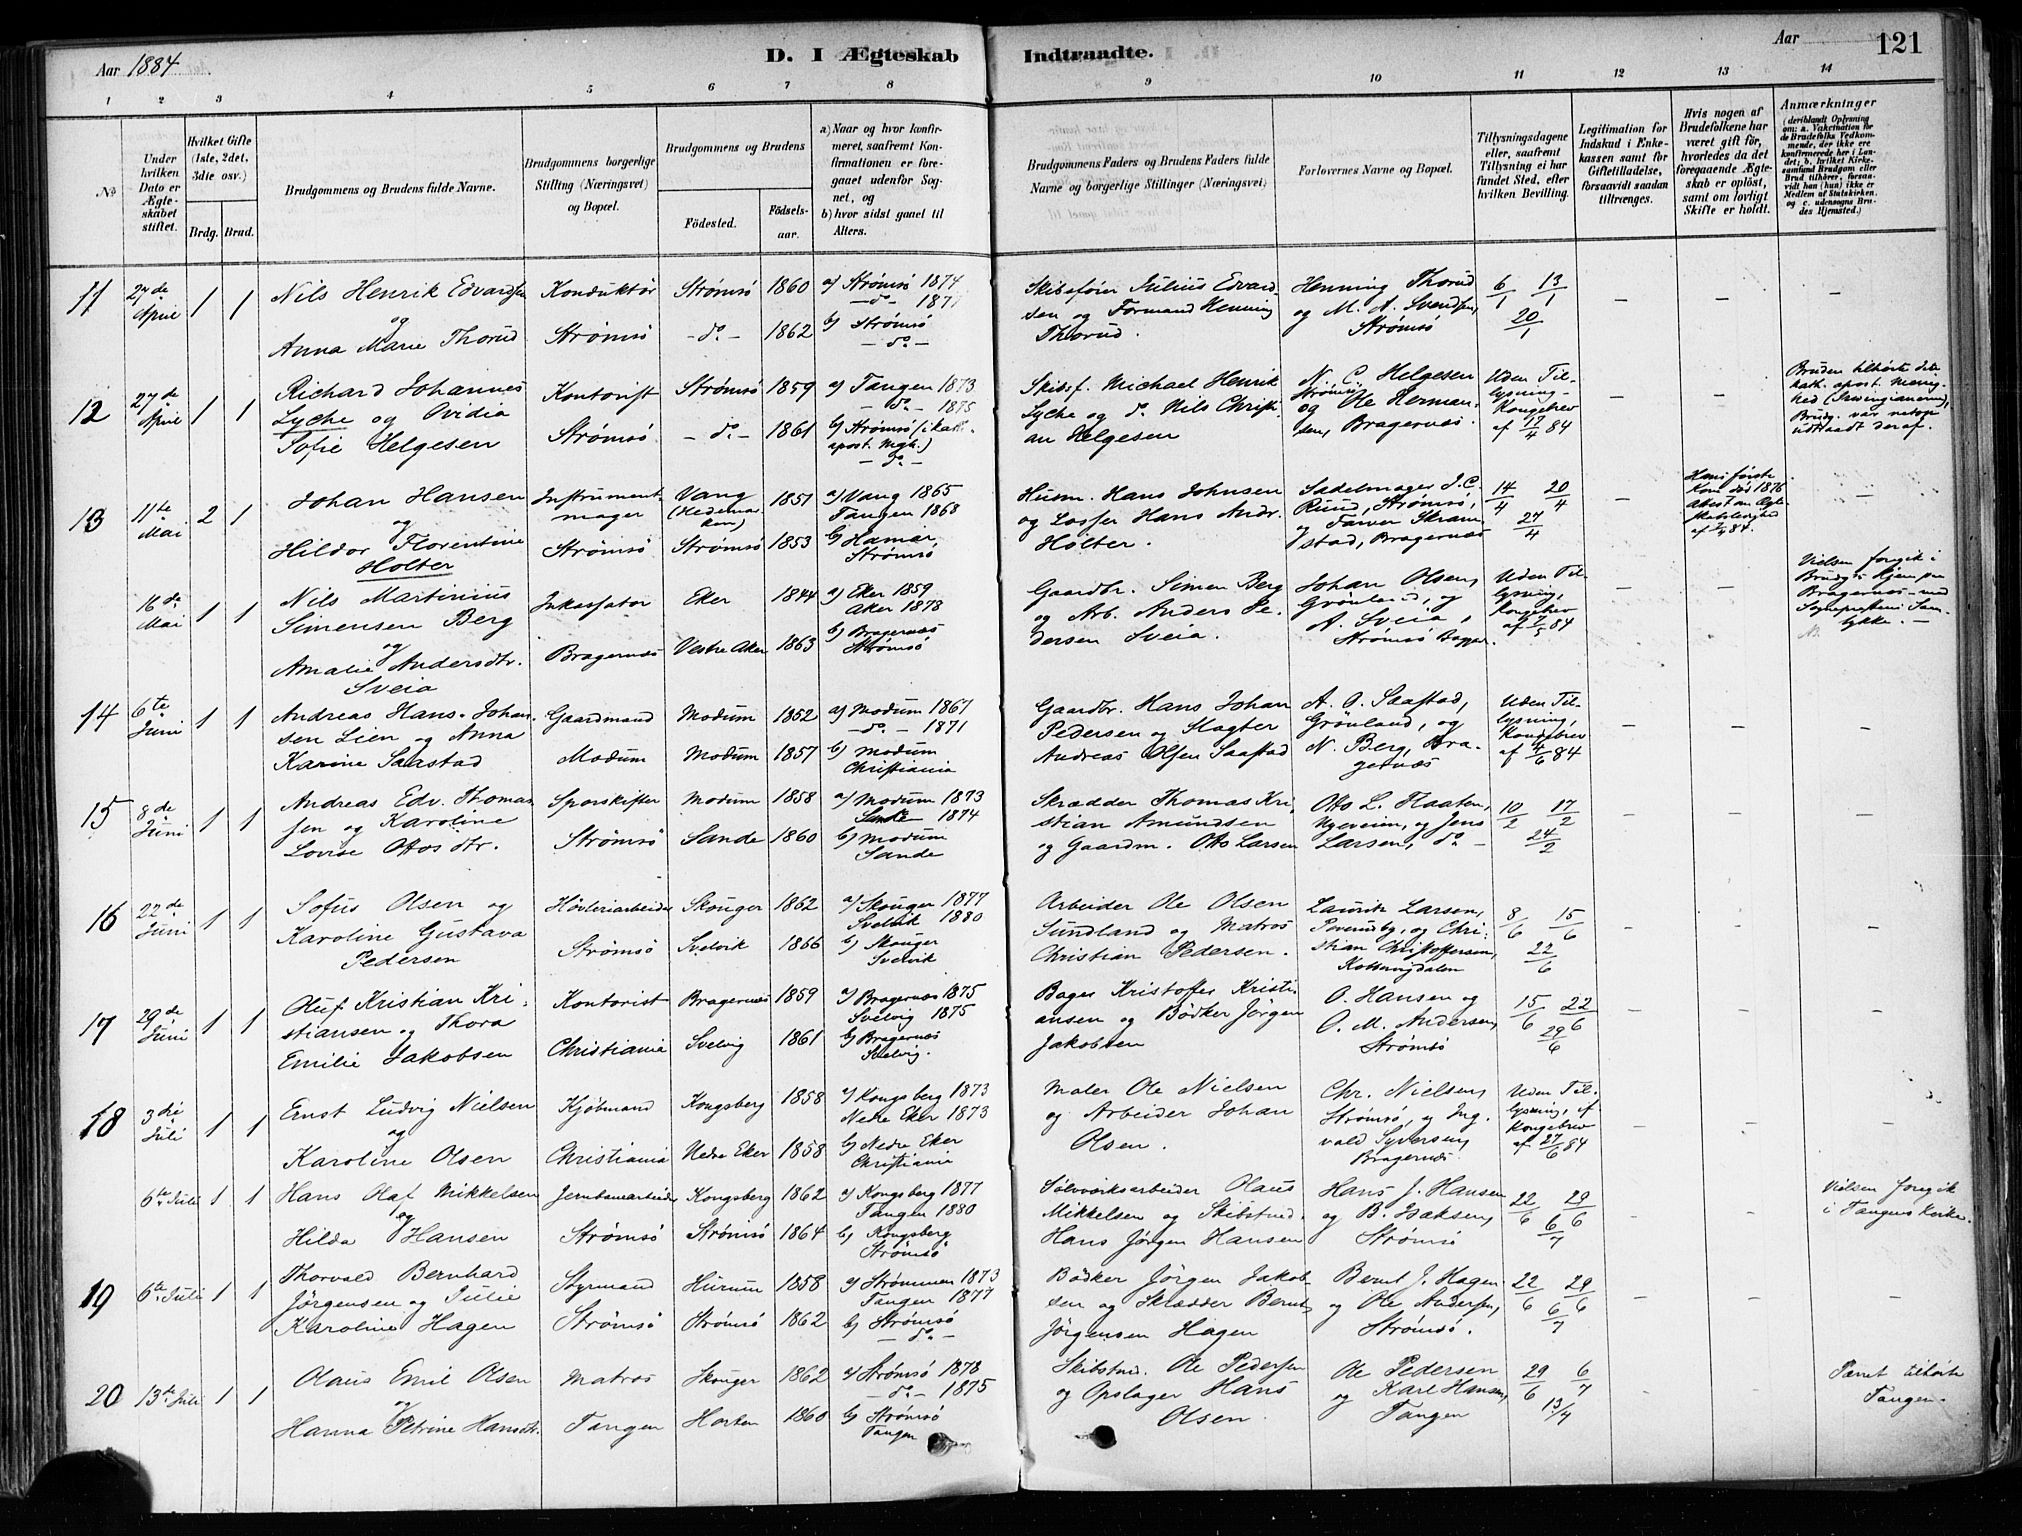 Aar 1884
D. I Ægteskab
Indtraadte.
Aar
121
1
2
3
4
5
6
7
8
9
10
11
12
13
14
No
Under hvilken Dato er Ægteskabet stiftet.
Hvilket Gifte (1ste, 2det, 3die osv.)
Brdg. Brud.
Brudgommens og Brudens fulde Navne.
Brudgommens borgerlige Stilling (Næringsvei) og Bopæl.
Brudgommens og Brudens
Födested.
Födselsaar.
a) Naar og hvor konfirmeret, saafremt Konfirmationen er foregaaet udenfor Sognet, og
b) hvor sidst gaaet til Alters.
Brudgommens Faders og Brudens Faders fulde Navne og borgerlige Stillinger (Næringsvei)
Forlovernes Navne og Bopæl.
Tillysningsdagene eller, saafremt Tillysning ei har fundet Sted, efter hvilken Bevilling.
Legitimation for Indskud i Enkekassen samt for Giftetilladelse, forsaavidt saadan tiltrænges.
Hvis nogen af Brudefolkene har været gift för, hvorledes da det foregaaende Ægteskab er oplöst, samt om lovligt Skifte er holdt.
Anmærkninger (deriblandt Oplysning om: a. Vakcination for de Brudefolks Vedkommende, der ikke ere konfirmerede her i Landet; b. hvilket Kirkesamfund Brudgom eller Brud tilhörer, forsaavidt han (hun) ikke er Medlem af Statskirken. og c. udensogns Brudes Hjemsted.)
11 27de April 1 1
Nils Henrik Edvardsen
og
Anna Marie Thorud
Konduktör
Strömsö
Strömsö 1860
-do- 1862
a) Strömsö 1874
-do- 1877
b) Strömsö
-do-
Skibsförer Julius Edvard-
sen og Formand Henning
Thorud.
Henning Thorud
og M. A. Svendsen,
Strömsö
6/1 13/1
20/1
12 27de April 1 1
Richard Johannes
Lyche og Ovidia
Sofie Helgesen
Kontorist
Strömsö
Strömsö 1859
-do- 1861
a) Tangen 1873
-do- 1875
b) Strömsö (i kath.
apost. Mgh.)
-do-
Skibsf. Michael Henrik
Lyche og do. Nils Christi-
an Helgesen
N. C. Helgesen
Strömsö,
og Ole Herman-
sen, Bragernæs.
Uden Til-
lysning -
Kongebrev
af 17/4 84
Bruden tilhörte det
kath. apost. Menig-
hed (Irvingianerne),
Brudg. var netop
udtraadt deraf.
13 11te Mai 2 1
Johan Hansen
og
Hildor Florentine
Holter
Instrument-
mager
Strömsö
Vang
(Hedema-
ken) 1851
Strömsö 1853
a) Vang 1865
Tangen 1868
b) Hamar,
Strömsö
Husm. Hans Johnsen
og Losser Hans Andr.
Holter.
Sadelmager J. C.
Ruud, Strömsö,
og Farver Skram-
stad, Bragernæs
14/4 20/4
27/4
Hans förste
Kone död 1876
Attest om Ægte-
skabsledighed
af 7/4 84.
16de Mai 1 1
Nils Martinius
Simensen Berg
og
Amalie Andersdtr.
Sveia
Inkassator
Bragernæs
Eker 1844
Vestre Aker 1863
a) Eker 1859
Aker 1878
b) Bragernæs
Strömsö
Gaardbr. Simen Berg
og Arb. Anders Pe-
dersen Sveia.
Johan Olsen,
Grönland, og
A. Sveia,
Strömsö
Uden Til-
lysning,
Kongebrev
af 7/5 84
Vielsen foregik i
Brudgs. Hjem paa
Bragernæs - med
Sognepræstens Sam-
tykke. -
14 6te Juni 1 1
Andreas Hans. Johan-
sen Lien og Anna
Karine Saastad
Gaardmand
Modum
Modum 1852
Modum 1857
a) Modum 1867
-do- 1871
b) Modum
Christiania
Gaardbr. Hans Johan
Pedersen og Slagter
Andreas Olsen Saastad
A. O. Saastad,
Grönland, og
N. Berg, Bra-
gernæs
Uden Til-
lysning,
Kongebrev
af 4/6 84
15 8de Juni 1 1
Andreas Edv. Thomas-
sen og Karoline
Lovise Ottosdtr.
Sporskifter
Strömsö
Modum 1858
Sande 1860
a) Modum 1873
Sande 1874
b) Modum
Sande
Skrædder Thomas Kri-
stian Amundsen
og Gaardm. Otto Larsen
Otto L. Flaaten,
Nyeveien, og Jens
Larsen, do -
10/2 17/2
24/2
16 22de Juni 1 1
Sofus Olsen og
Karoline Gustava
Pedersen
Hövleriarbeider
Strömsö
Skouger 1862
Svelvik 1866
a) Skouger 1877
Svelvik 1880
b) Skouger
Svelvik
Arbeider Ole Olsen
Sundland og Matros
Christian Pedersen.
Lauritz Larsen,
og Chri-
stian Christoffersen,
8/6 15/6
22/6
17 29de Juni 1 1
Oluf Kristian Kri-
stiansen og Thora
Emilie Jakobsen
Kontorist
Christiania
Bragernæs 1859
Svelvig 1861
a) Bragernæs 1875
Svelvig 1875
b) Bragernæs
Svelvig.
Bager Kristoffer Kristi-
ansen og Bödker Jörgen
Jakobsen
O. Hansen og
O. M. Andersen,
Strömsö
15/6 22/6
29/6
18 3die Juli 1 1
Ernst Ludvig Nielsen
og
Karoline Olsen
Kjöbmand
Christiania
Kongsberg 1858
Nedre Eker 1858
a) Kongsberg 1873
Nedre Eker 1873
b) Nedre Eker
Christiania
Maler Ole Nielsen
og Arbeider Johan
Olsen.
Chr. Nielsen,
Strömsö, og Ing-
vald Syversen,
Bragernæs.
Uden Til-
lysning, if
Kongebrev
af 27/6 84
6te Juli 1 1
Hans Olaf Mikkelsen
og
Hilda Hansen
Jernbanearbeider
Strömsö
Kongsberg 1862
Strömsö 1864
a) Kongsberg 1877
Tangen 1880
b) Kongsberg
Strömsö
Sölvværksarbeider Olaus
Mikkelsen og Skibstmd.
Hans Jörgen Hansen
Hans J. Hansen
og B. Isaksen,
Strömsö
22/6 29/6
6/7
Vielsen foregik
i Tangens Kirke.
19 6te Juli 1 1
Thorvald Bernhard
Jörgensen og Julie
Karoline Hagen
Styrmand
Strömsö
Hurum 1858
Strömsö 1862
a) Strömmen 1873
Tangen 1877
b) Strömsö
-do-
Bödker Jörgen Jakob-
sen og Skrædder Bernt
Jörgensen Hagen
Bernt J. Hagen
og Ole Andersen,
Strömsö.
22/6 29/6
6/7
20 13de Juli 1 1
Olaus Emil Olsen
og
Hanna Petrine Hansdtr.
Matros
Tangen
Skouger 1862
Horten 1860
a) Strömsö 1878
-do- 1875
b) Strömsö
Tangen
Skibstmd. Ole Pedersen
og Opslager Hans
Olsen.
Ole Pedersen
og Karl Hansen,
Tangen
29/6 6/7
13/7
Parret tilhörte
Tangen.